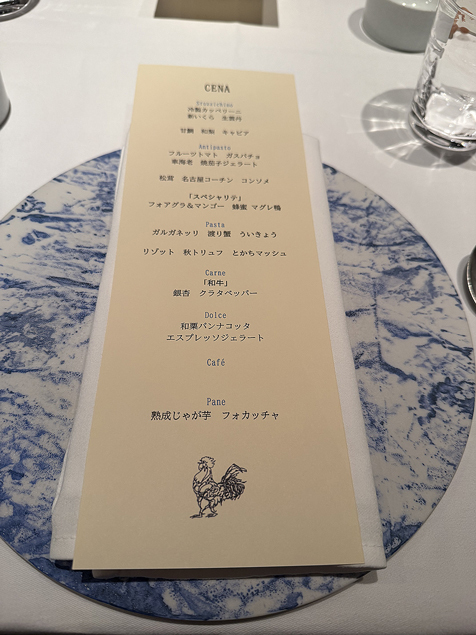 CENA
Stuzzichino
冷製カッペリーニ
新いくら 生雲丹
甘鯛 和梨 キャビア
Antipasto
フルーツトマト ガスパチョ
車海老 焼茄子ジェラート
松茸 名古屋コーチン コンソメ
「スペシャリテ」
フォアグラ&マンゴー 蜂蜜 マグレ鴨
Pasta
ガルガネッリ 渡り蟹 ういきょう
リゾット 秋トリュフ とかちマッシュ
Carne
「和牛」
銀杏 クラタペッパー
Dolce
和栗パンナコッタ
エスプレッソジェラート
Café
Pane
熟成じゃが芋 フォカッチャ